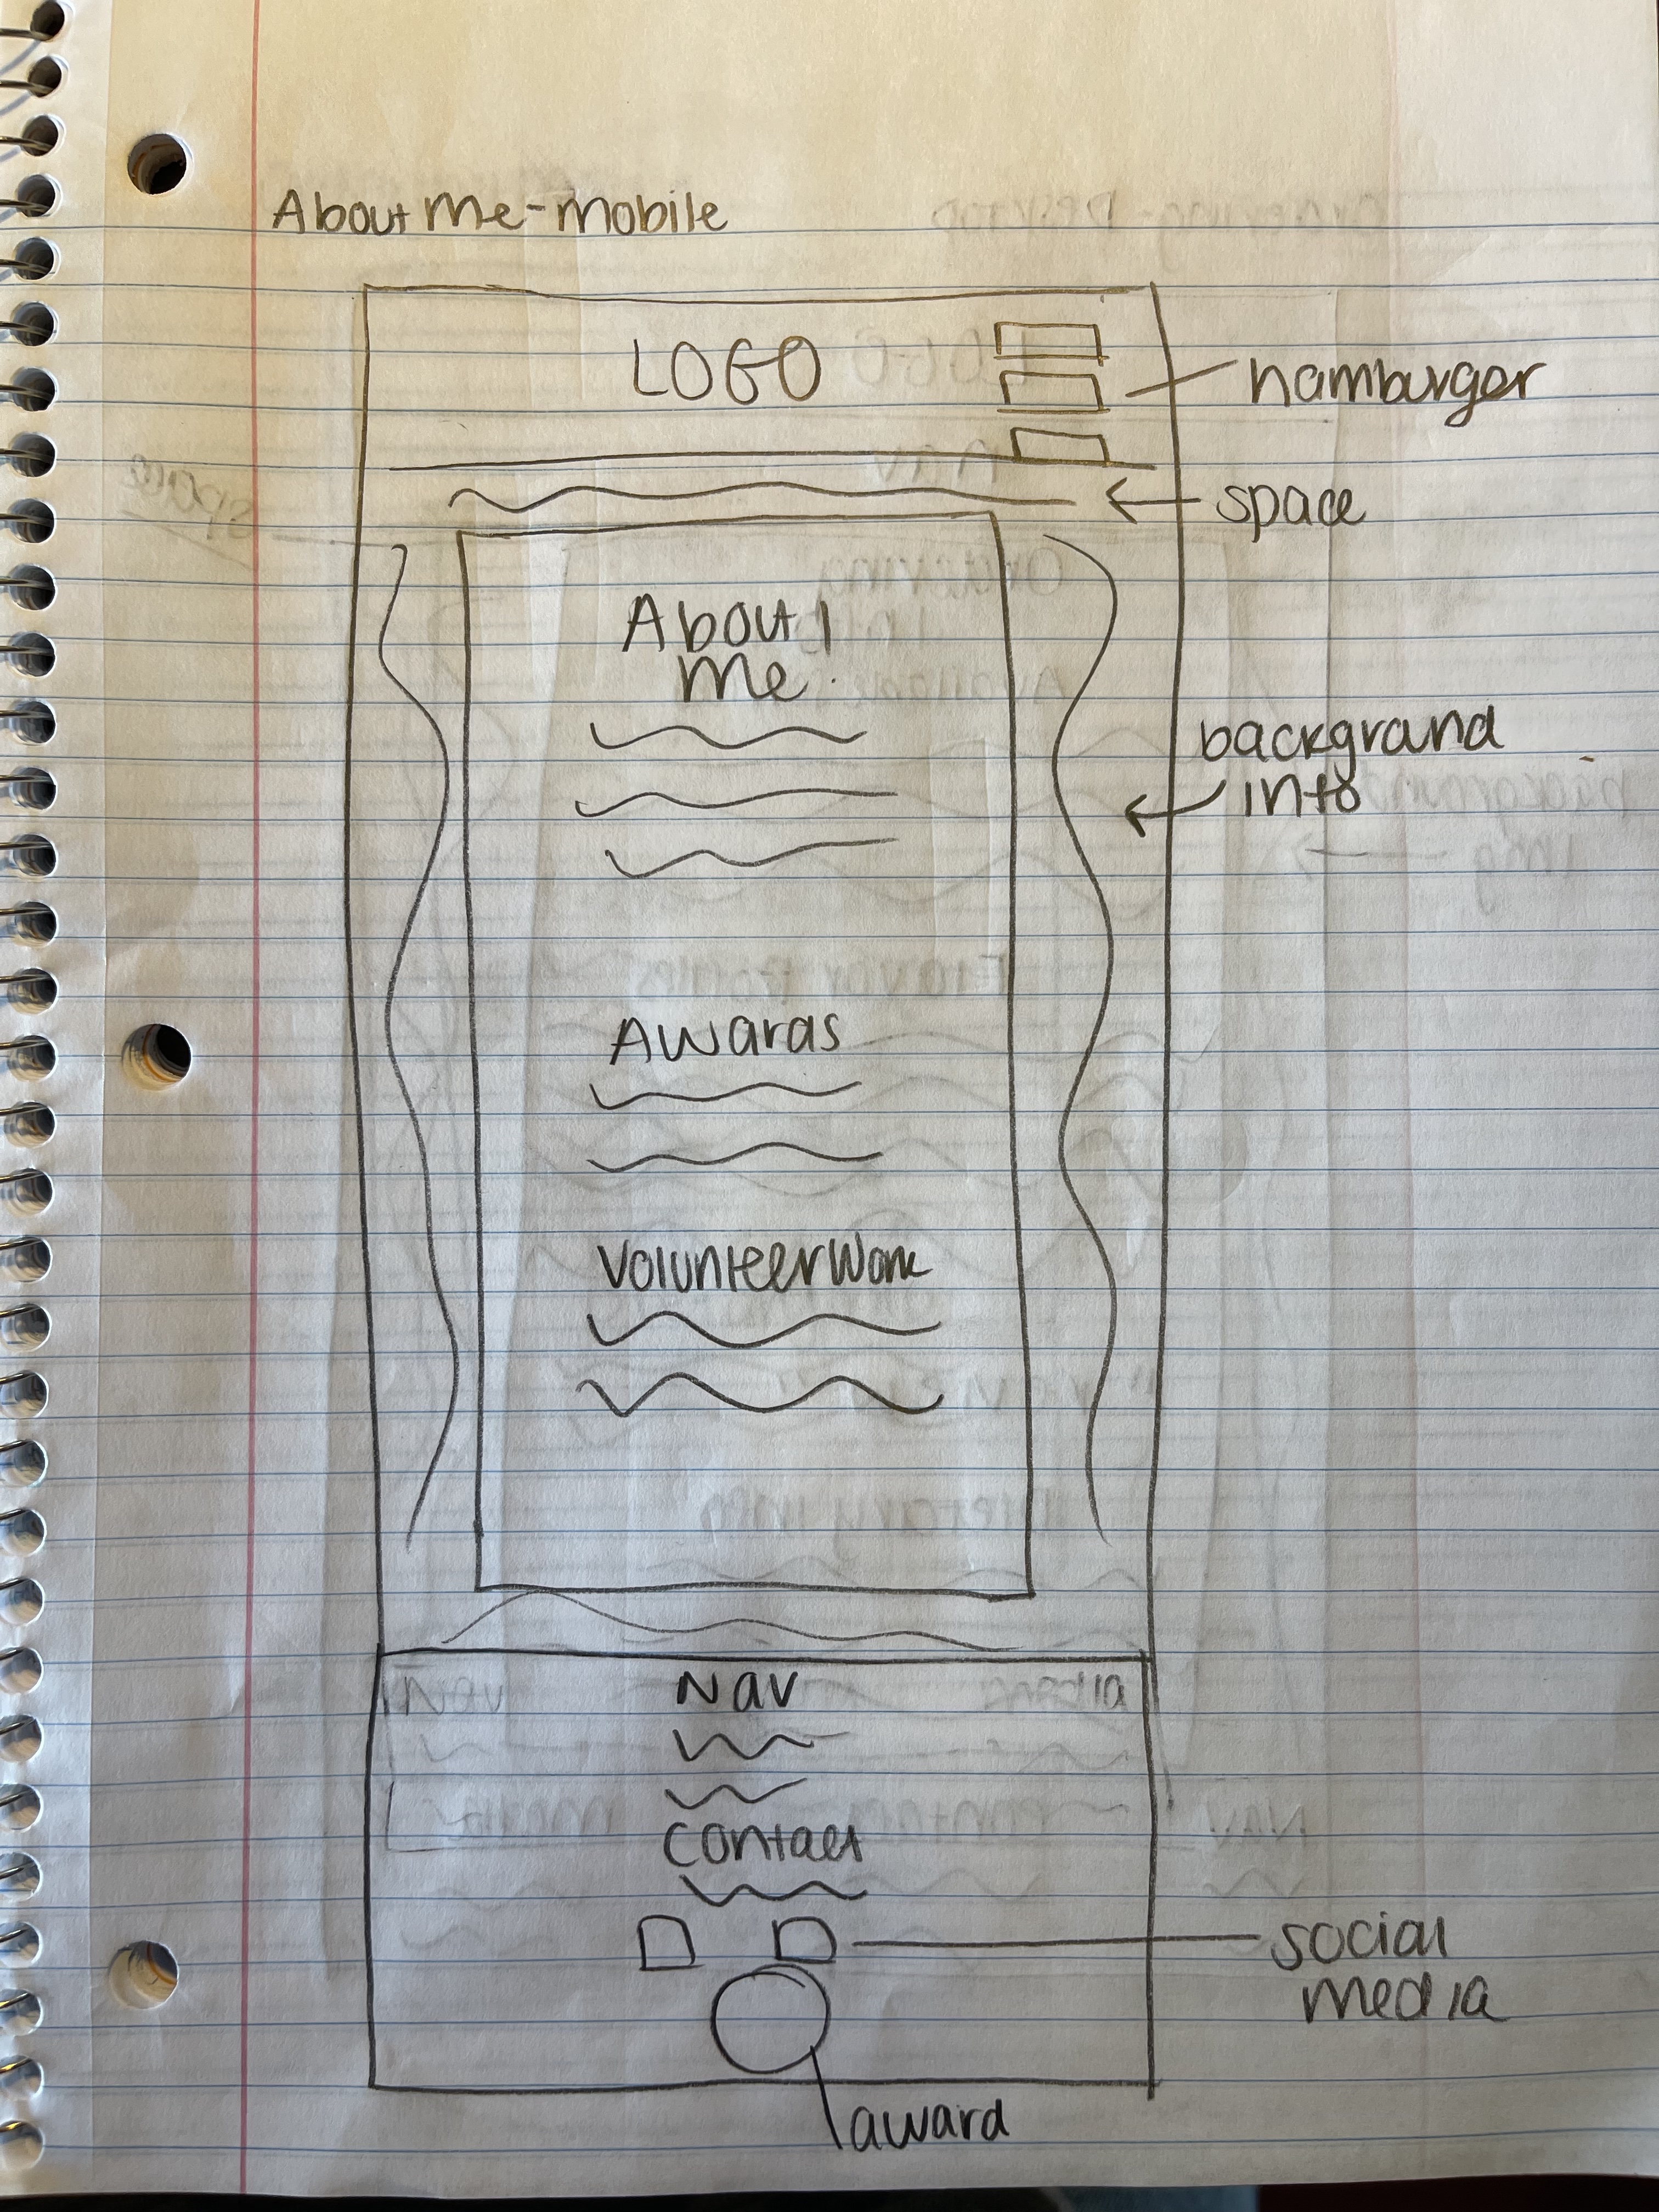 About Me - Mobile
LOGO
hamburger
space
About
Me
background
into
Awards
Volunteer Work
Nav
Contact
social
media
award